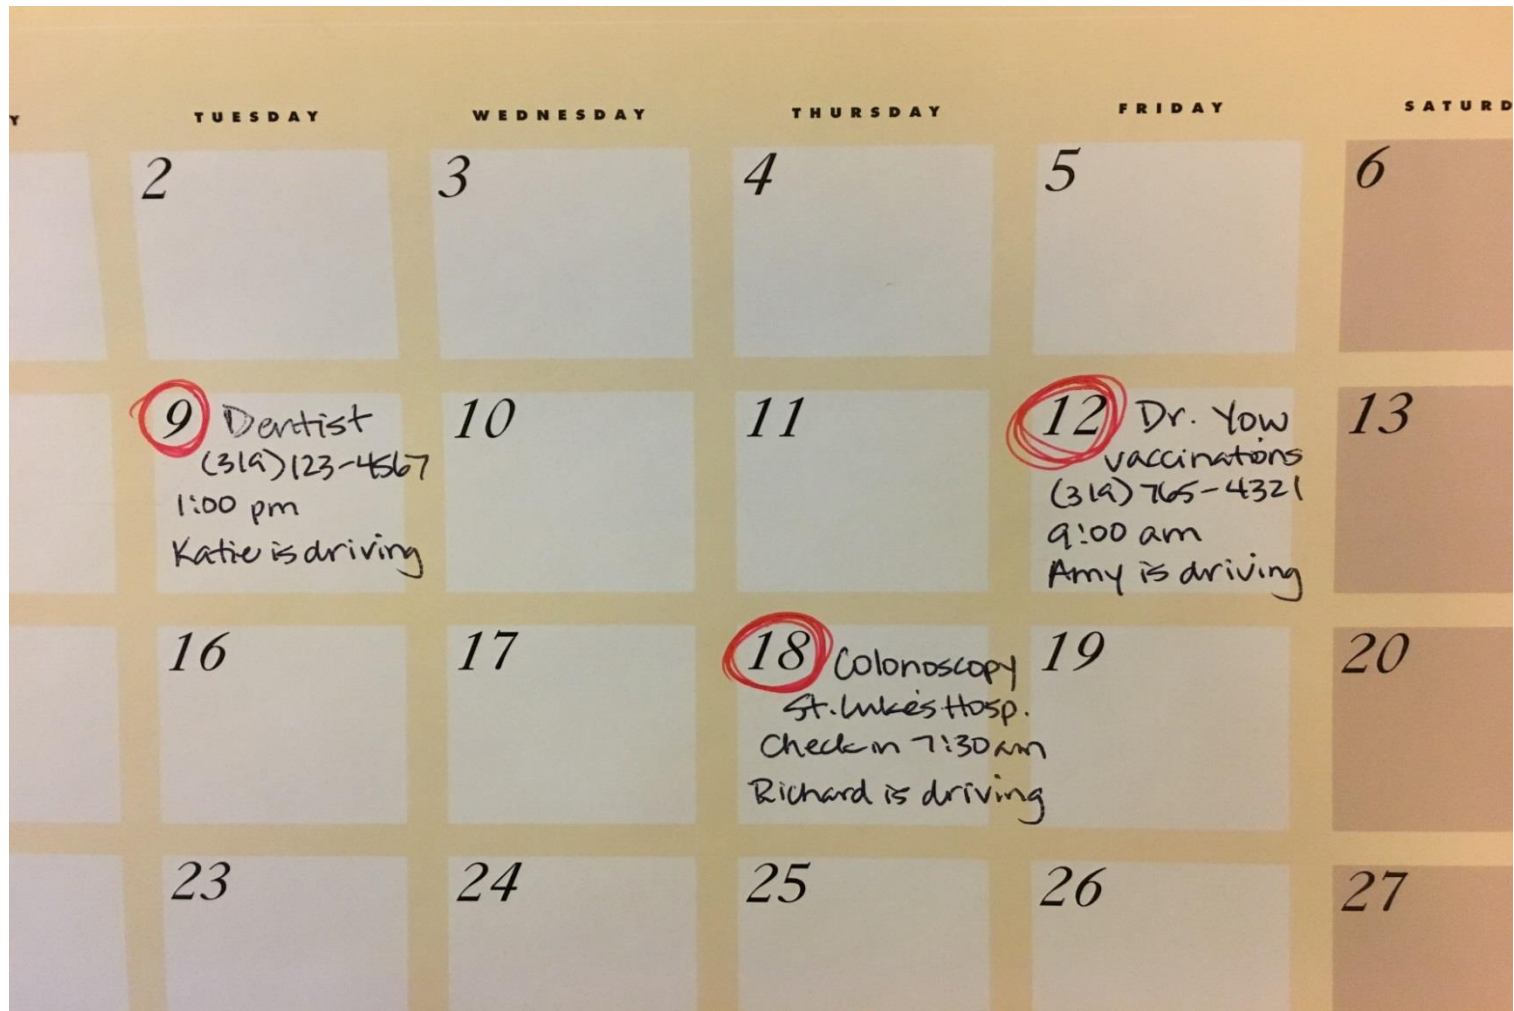 Y TUESDAY WEDNESDAY THURSDAY FRIDAY SATURD
2 3 4 5 6
9 Dentist
(319)123-4567
1:00 pm
Katie is driving
10 11
12 Dr. Yow
vaccinations
(319)765-4321
9:00 am
Amy is driving
13
16 17
18 Colonoscopy
St. Luke's Hosp.
Check in 7:30 am
Richard is driving
19 20
23 24 25 26 27